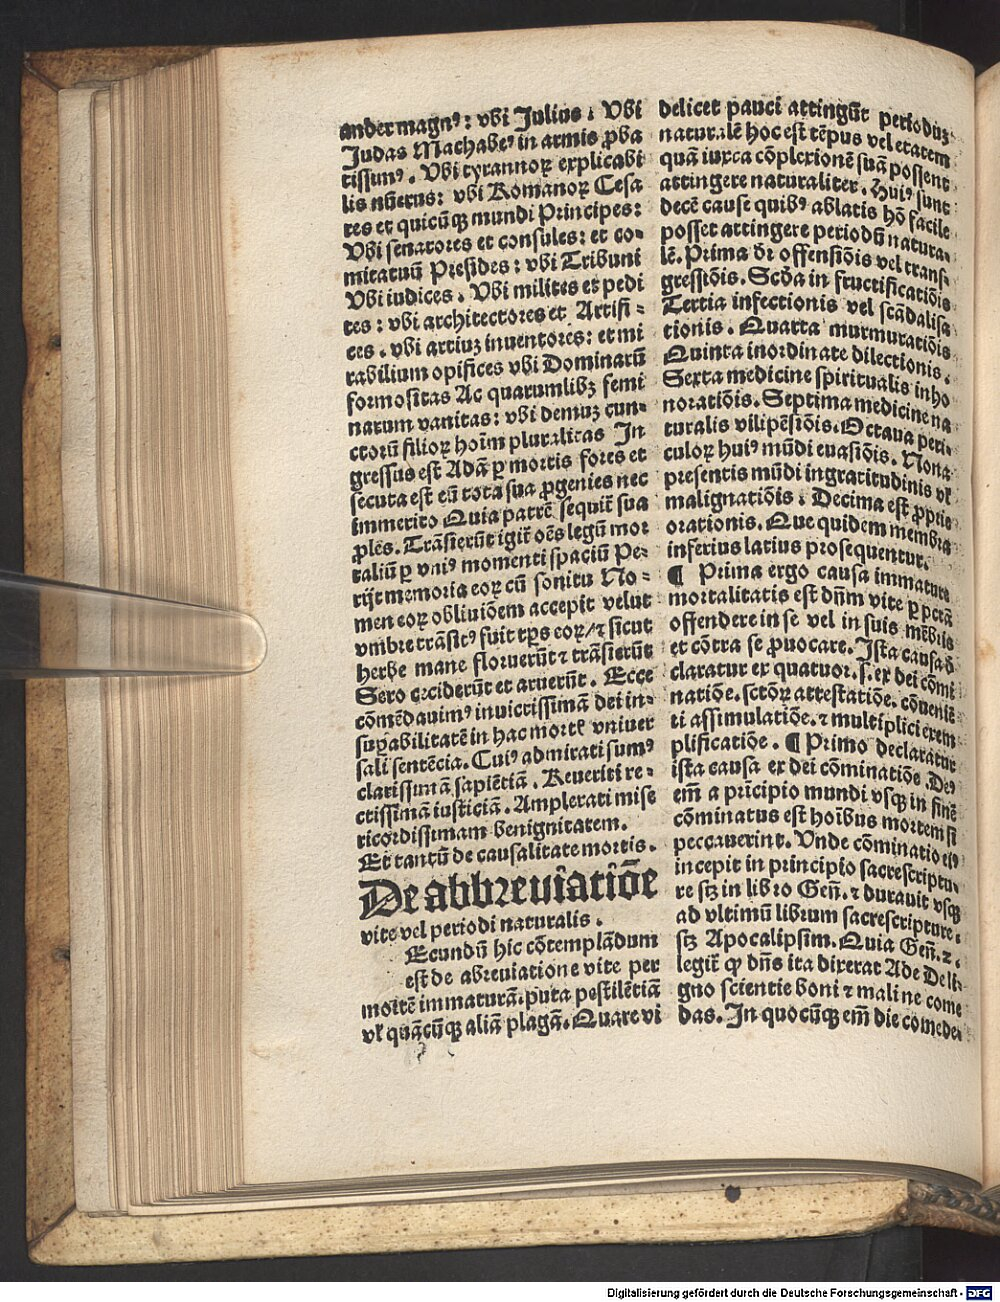 andermagnꝰ: vbi Julius: Vbi
Judas Machabeꝰ in armis ꝓba
tissimꝰ. Vbi tyrannoꝝ explicabi
lis nūerus: vbi Romanoꝝ Cesa
res et quicūqꝫ mundi Principes:
Vbi senatores et consules: et co-
mitatuū Presides: vbi Tribuni
Vbi iudices. Vbi milites et pedi
tes: vbi architectores et Artifi-
ces. vbi artiuꝫ inuentores: et mi
rabilium opifices vbi Dominarū
formositas Ac quarumlibꝫ femi
narum vanitas: vbi demuꝫ cun-
ctorū filioꝝ hoīm pluralitas In
gressus est Adā ꝑ mortis fores et
secuta est eū tota sua ꝓgenies nec
immerito Quia patrē sequit̄ sua
ꝓles. Trāsierūt igit̄ oēs legū mor
taliū ꝑ vniꝰ momenti spaciū Pe-
rijt memoria eoꝝ cū sonitu No-
men eoꝝ obliuiōem accepit velut
vmbre trāsitꝰ fuit tp̄s eoꝝ/⁊ sicut
herbe mane floruerūt ⁊ trāsierūt
Sero ceciderūt et aruerūt. Ecce
cōmēdauimꝰ inuictissimā dei in-
suꝑabilitatē in hac mortē vniuer
sali sentēcia. Cuiꝰ admirati sumꝰ
clarissimā sapiētiā. Reueriti re-
ctissimā iusticiā. Amplexati mise
ricordissimam benignitatem.
Et tantū de causalitate mortis.
De abbreuiatiōe
vite vel periodi naturalis.
Ecundū hic cōtemplādum
est de abreuiatione vite per
mortē immaturā. puta pestilētiā
vl̄ quācūqꝫ aliā plagā. Quare vi
delicet pauci attingūt perioduꝫ
naturalē hoc est tēpus vel etatem
quā iuxta cōplexionē suā possent
attingere naturaliter. Huiꝰ sunt
decē cause quibꝰ ablatis hō facile
posset attingere periodū natura-
lē. Prima dr̄ offensiōis vel trans-
gressiōis. Scd̄a in fructificatiōis
Tertia infectionis vel scādalisa
tionis. Quarta murmuratiōis
Quinta inordinate dilectionis.
Sexta medicine spiritualis inho
noratiōis. Septima medicine na
turalis vilipēsiōis. Octaua peri-
culoꝝ huiꝰ mūdi euasiōis. Nona
presentis mūdi ingratitudinis vl̄
malignatiōis: Decima est ꝓprie
orationis. Que quidem membra
inferius latius prosequentur.
¶ Prima ergo causa immature
mortalitatis est dn̄m vite ꝑ pctā
offendere in se vel in suis mēbris
et cōtra se ꝓuocare. Ista causa d̄
claratur ex quatuor. s. ex dei cōmi
natiōe. sctōꝝ attestatiōe. cōueniē
ti assimulatiōe. ⁊ multiplici exem-
plificatiōe. ¶ Primo declaratur
ista causa ex dei cōminatiōe. Deꝰ
em̄ a prīcipio mundi vsqꝫ in finē
cōminatus est hoībus mortem si
peccauerint. Vnde cōminatio eiꝰ
incepit in principio sacrescriptu-
re sꝫ in libro Gen̄. ⁊ durauit vsqꝫ
ad vltimū librum sacrescripture:
sꝫ Apocalipsim. Quia Gen̄. ⁊.
legit̄ ꝙ dn̄s ita dixerat Ade De li-
gno scientie boni ⁊ mali ne come
das. In quocūqꝫ em̄ die comede-
Digitalisierung gefördert durch die Deutsche Forschungsgemeinschaft - DFG